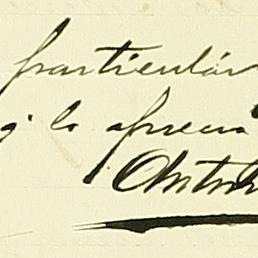 particular
q. lo aprecia
Anto